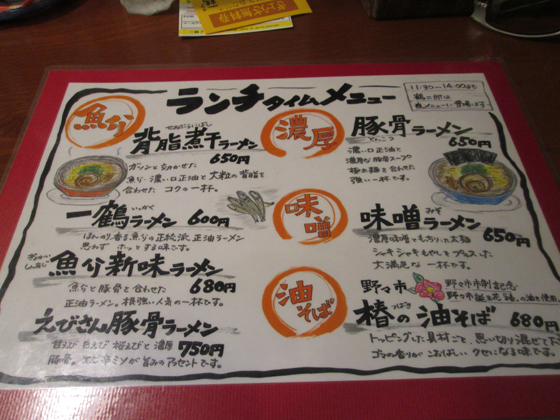 ランチタイムメニュー
11:30〜14:00まで
魚介
背脂煮干ラーメン
650円
ガツンと効かせた
魚介・濃い口正油と大粒の背脂を
合わせた コクの一杯。
一鶴ラーメン 600円
いっかく
ほんのり香る魚介の正統派 正油ラーメン
思わず ホッとする味です。
魚介新味ラーメン
680円
魚介と豚骨を合わせた
正油ラーメン。根強い人気の一杯です。
えびさん豚骨ラーメン
750円
甘えび 白えび 桜えびと濃厚
豚骨。エビ辛ミソが旨みのアクセントです。
濃厚
豚骨ラーメン
とんこつ
650円
濃い口正油と
濃厚な豚骨スープの
強い一杯です。
味噌
味噌ラーメン
みそ
650円
濃厚味噌ともっちり太麺
シャキシャキもやしをプラスした
大満足な一杯です。
油そば
野々市
野々市市制記念
椿の油そば 680円
つばき
トッピングした具材ごと、思い切り混ぜて下
ゴマの香りがこおばしい、クセになる味です。